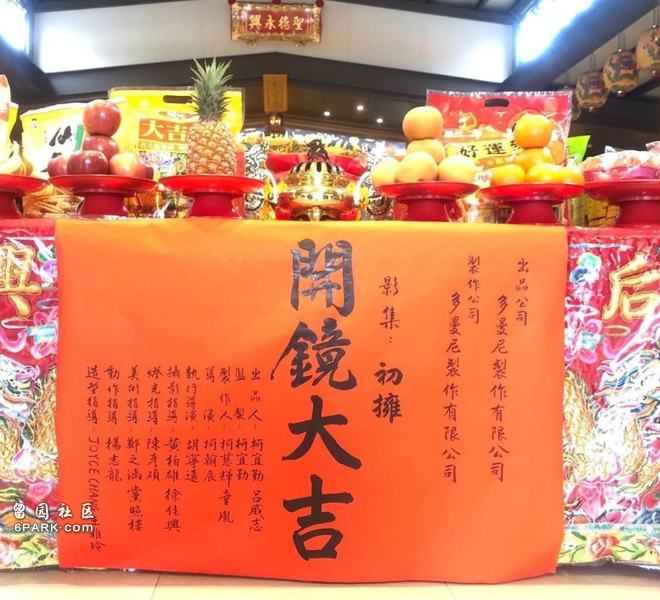 興永德聖
大吉
好運
出品公司
多曼尼製作有限公司
製作公司
多曼尼製作有限公司
影集：初擁
開鏡大吉
出品人：柯宜勤 呂威志
監製：柯宜勤
製作人：柯慧輝 童胤
導演：柯翰辰
執行導演：胡寧遠
攝影指導：黃柏雄 徐佳興
燈光指導：陳彥碩
美術指導：鄭之涵 堂照樓
動作指導：楊志龍
造型指導：JOYCE CHANG 雅玲
興
后
留园社区
6PARK.com